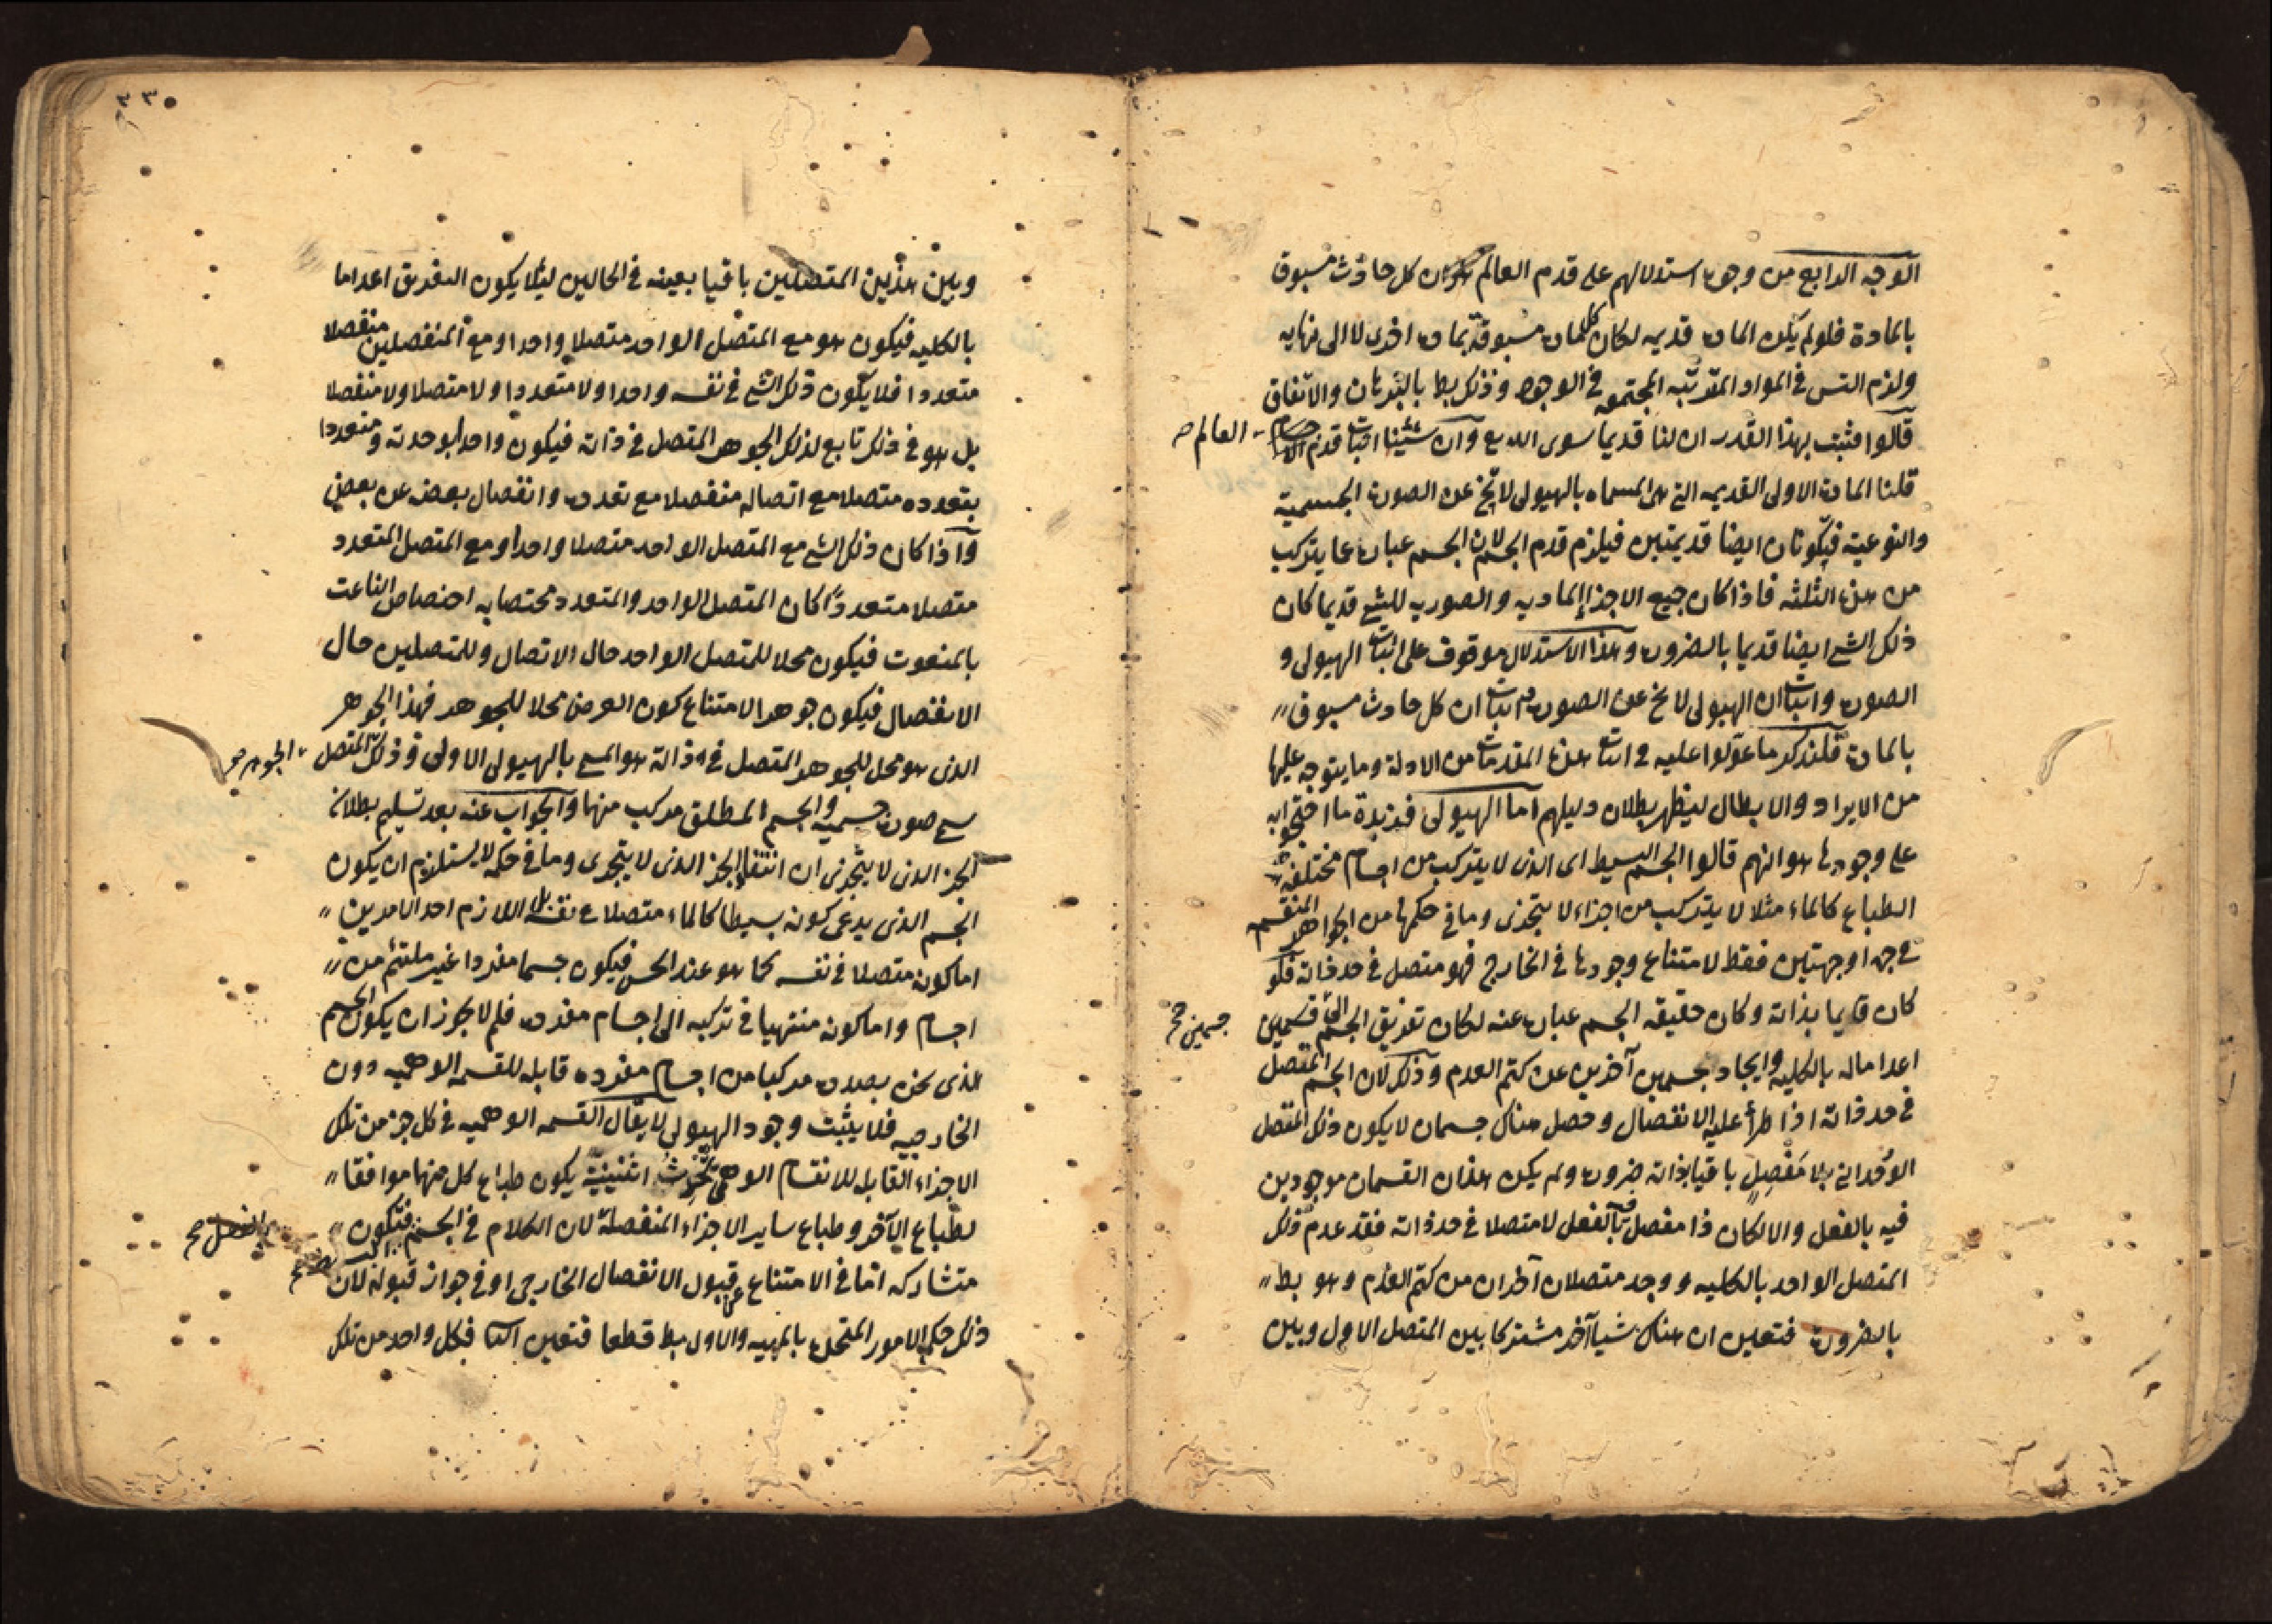 الوجه الرابع من وجوه استدلالهم على قدم العالم ان كل حادث مسبوق
بالمادة فلو لم يكن المادة قديمه لكان كل مادة مسبوقة بمادة اخرى لا الى نهايه
ولزم التس في المواد المترتبه المجتمعه في الوجود وذلك بط بالبرهان والاتفاق
قالوا فثبت بهذا القدر ان لنا قديما سوى الله تع وان شئنا اثبات قدم الاجسام
العالم صح
قلنا المادة الاولى القديمه التي هي المسماه بالهيولى لا تخ عن الصورة الجسمية
والنوعية فيكونان ايضا قديمتين فيلزم قدم الجسم لان الجسم عبارة عما يتركب
من هذه الثلثه فاذا كان جميع الاجزا المادیه والصوريه للشئ قديما كان
ذلك الشئ ايضا قديما بالضرورة وهذا الاستدلال موقوف على اثبات الهيولى و
الصورة واثبات ان الهيولى لا تخ عن الصورة ثم اثبات ان كل حادث مسبوق
بالمادة فلنذكر ما عولوا عليه في اثبات هذه المقدمات من الادلة وما يتوجه عليها
من الايراد والابطال ليظهر بطلان دليلهم اما الهيولى فزبدة ما احتجوا به
على وجودها هو انهم قالوا الجسم البسيط اى الذى لا يتركب من اجسام مختلفة
الطباع كالماء مثلا لا يتركب من اجزاء لا يتجزى وما في حكمها من الجواهر المنقسم
في جهة او جهتين فقط لامتناع وجودها في الخارج فهو متصل في حد ذاته فلو
كان قايما بذاته وكان حقيقه الجسم عبارة عنه لكان تفريق الجسم الى قسمين
جسمين صح
اعداما له بالكلية وايجاد جسمين آخرين عن كتم العدم وذلك لان الجسم المتصل
في حد ذاته اذا طرأ عليه الانفصال وحصل هناك جسمان لا يكون ذلك المتصل
الوحدانى بلا مفصل باقيا بذاته ضرورة ولم يكن هذان القسمان موجودين
فيه بالفعل والا لكان ذا مفصل بالفعل لا متصلا في حد ذاته فقد عدم ذلك
المتصل الواحد بالكليه ووجد متصلان آخران من كتم العدم وهو بط
بالضرورة فتعين ان هناك شيا آخر مشتركا بين المتصل الاول وبين
٣٣٠
وبين هذين المتصلين باقيا بعينه في الحالين ليلا يكون التفريق اعداما
بالكليه فيكون هو مع المتصل الواحد متصلا واحدا ومع المنفصلين منفصلا
متعددا فلا يكون ذلك الشئ في نفسه واحدا ولا متعددا ولا متصلا ولا منفصلا
بل هو في ذلك تابع لذلك الجوهر المتصل في ذاته فيكون واحدا بوحدته ومتعددا
بتعدده متصلا مع اتصاله منفصلا مع تعدده وانفصال بعضه عن بعض
واذا كان ذلك الشئ مع المتصل الواحد متصلا واحدا ومع المتصل المتعدد
متصلا متعددا كان المتصل الواحد والمتعدد مختصا به اختصاص الناعت
بالمنعوت فيكون محلا للمتصل الواحد حال الاتصال وللمتصلين حال
الانفصال فيكون جوهرا لامتناع كون العرض محلا للجوهر فهذا الجوهر
الذى هو محل للجوهر المتصل في ذاته هو المسمى بالهيولى الاولى وذلك المتصل
الجوهر صح
يسمى صورة جسميه والجسم المطلق مركب منهما والجواب عنه بعد تسليم بطلان
الجزء الذى لا يتجزى ان انتفا الجز الذى لا يتجزى وما في حكمه لا يستلزم ان يكون
الجسم الذى يدعى كونه بسيطا كالماء متصلا في نفسه بل اللازم احد الامرين
اما كونه متصلا في نفسه كما هو عند الحس فيكون جسما مفردا غير ملتئم من
اجسام واما كونه منتهيا في تركبه الى اجسام مفردة فلم لا يجوز ان يكون الجسم
الذى نحن بصدده مركبا من اجسام مفرده قابله للقسمه الوهميه دون
الخارجيه فلا يثبت وجود الهيولى لا يقال القسمه الوهميه في كل جزء من تلك
الاجزاء القابله للانقسام الوهمى تحدث اثنينية يكون طباع كل منهما موافقا
لطباع الآخر وطباع ساير الاجزاء المنفصلة لان الكلام في الجسم فتكون
متشاركه اما في الامتناع عن قبول الانفصال الخارجى او في جواز قبوله لان
ذلك حكم الامور المتحدة بالمهيه والاول بط قطعا فتعين الثانى فكل واحد من تلك